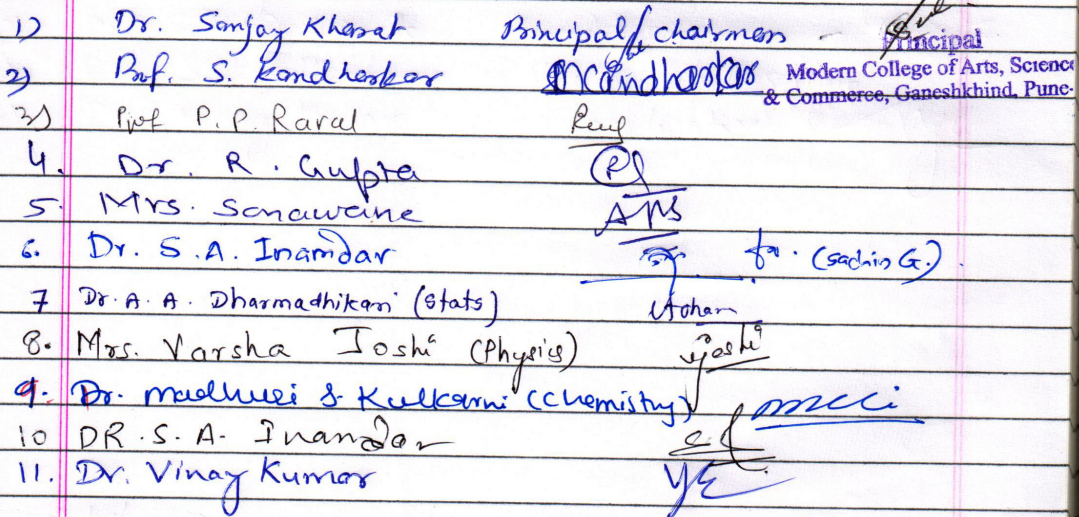 1) Dr. Sanjay Kharat Principal / chairman - Principal
2) Prof. S. Kandharkar Modern College of Arts, Science
& Commerce, Ganeshkhind, Pune-
3) Prof P. P. Raval
4. Dr. R. Gupta
5. Mrs. Sonawane
6. Dr. S. A. Inamdar for. (Sachin G.).
7 Dr. A. A. Dharmadhikari (Stats)
8. Mrs. Varsha Joshi (Physics) Joshi
9. Dr. Madhuri S. Kulkarni (Chemistry)
10 DR. S. A. Inamdar
11. Dr. Vinay Kumar